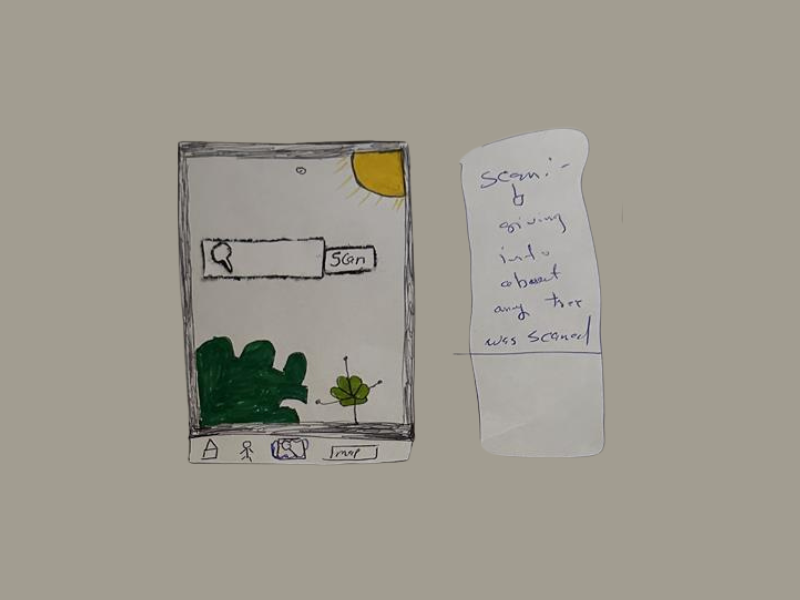 Scan
map
Scan:-
giving
info
about
any tree
was scaned